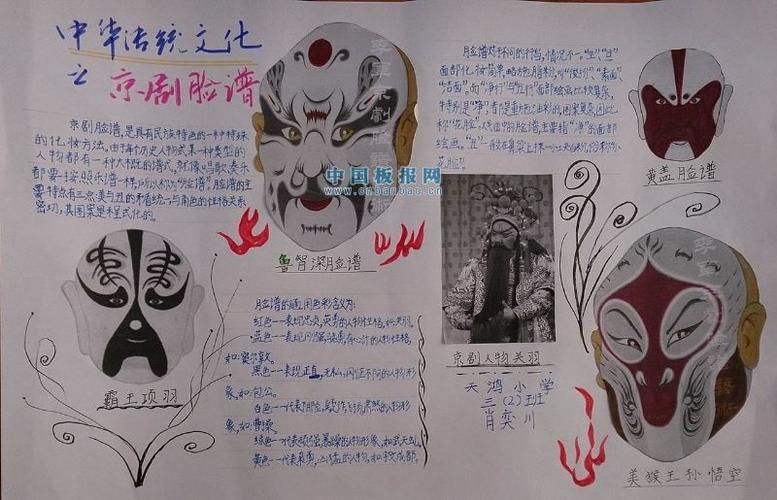 中华传统文化
之 京剧脸谱
京剧脸谱,是具有民族特色的一种特殊
的化妆方法。由于每个历史人物或某一种类型的
人物都有一种大概的谱式,就像唱歌、奏乐
都要按照乐谱一样,所以称为“脸谱”。脸谱的主
要特点有三点:美与丑的矛盾统一;与角色的性格关系
密切;其图案是程式化的。
霸王项羽
鲁智深脸谱
中国板报网
www.banbao.cn
脸谱的
红色——表现忠贞、英勇的人物性格,如:关羽。
蓝色——表现
黑色——表现正直、无私、刚正不阿的人物形
象,如:包公。
白色——代表阴险、
象,如:曹操。
绿色——代表顽强、暴躁的人物形象,如:武天虬。
黄色——代表枭勇、凶猛的人物,如:宇文成都。
脸谱对于不同的行当,情况不一。“生”、“旦”
面部化妆简单,略施脂粉,叫“俊扮”、“素面”、
“洁面”。而“净行”与“丑行”面部绘画比较复杂,
特别是“净”,都是重施油彩的,图案复杂,因此
称“花脸”。
花脸”。
黄盖脸谱
京剧人物关羽
天鸿小学
三(2)班
肖奕川
美猴王孙悟空